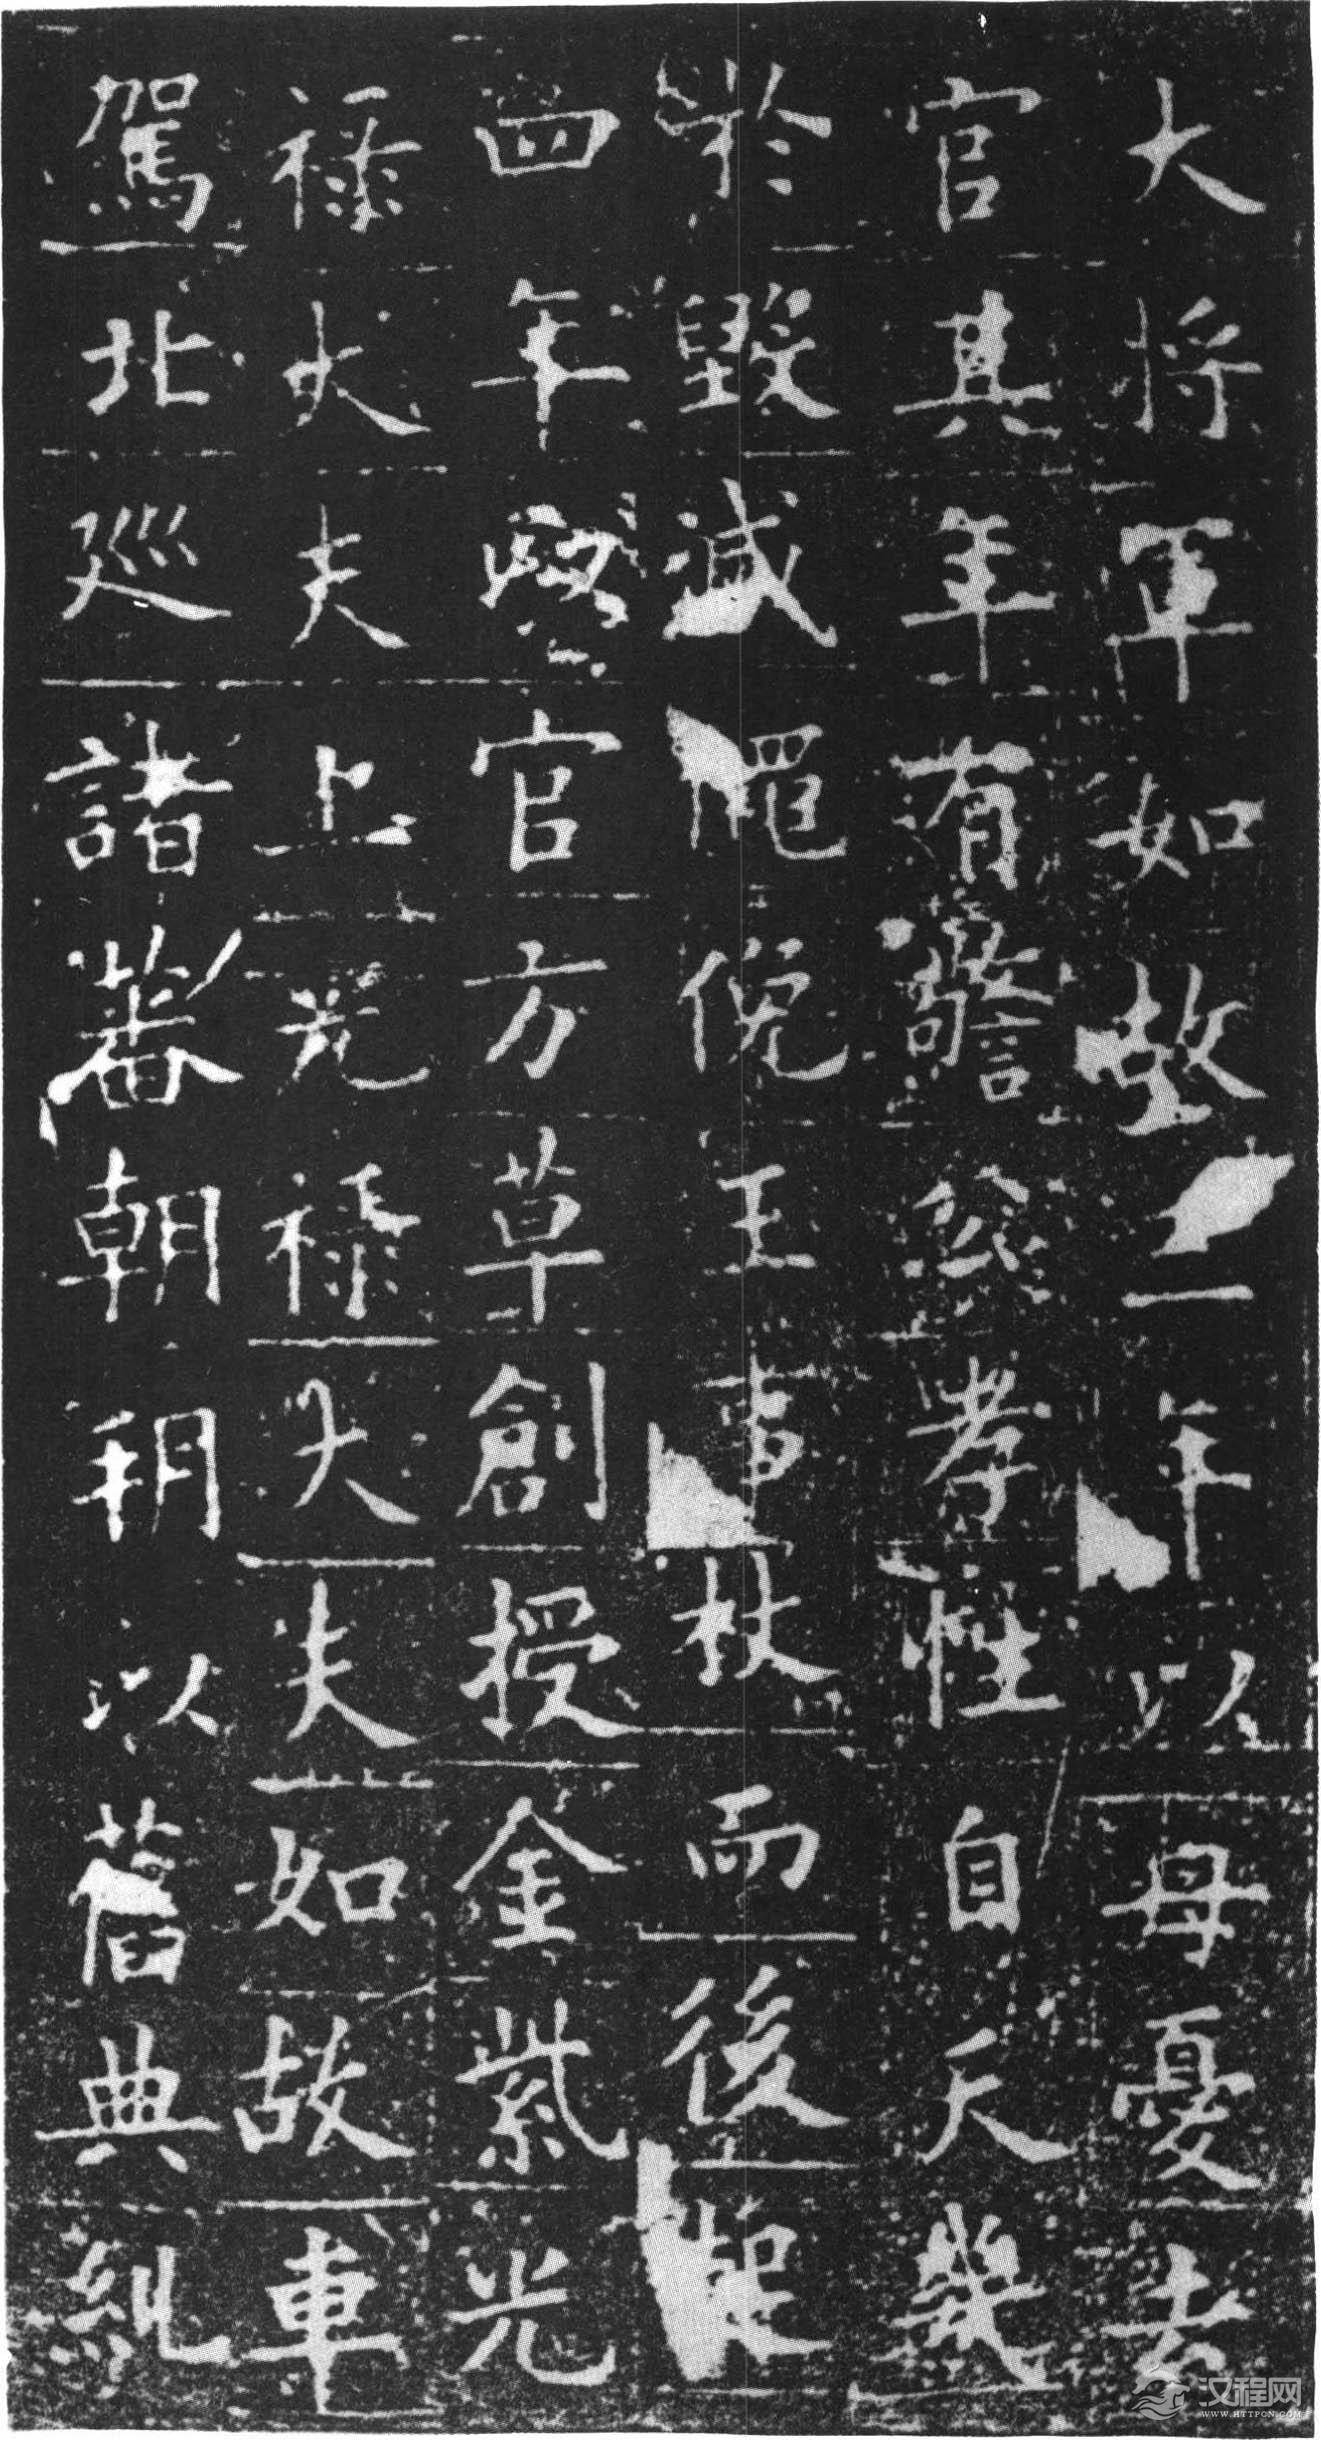 大將軍如故二年以母憂去
官其年有警孝性自天幾
於毀滅僶俛王事杖而後起
四年改官方草創授金紫光
祿大夫上光祿大夫如故車
駕北巡諸蕃朝朔以舊典糺
汉程网
WWW.HTTPCN.COM